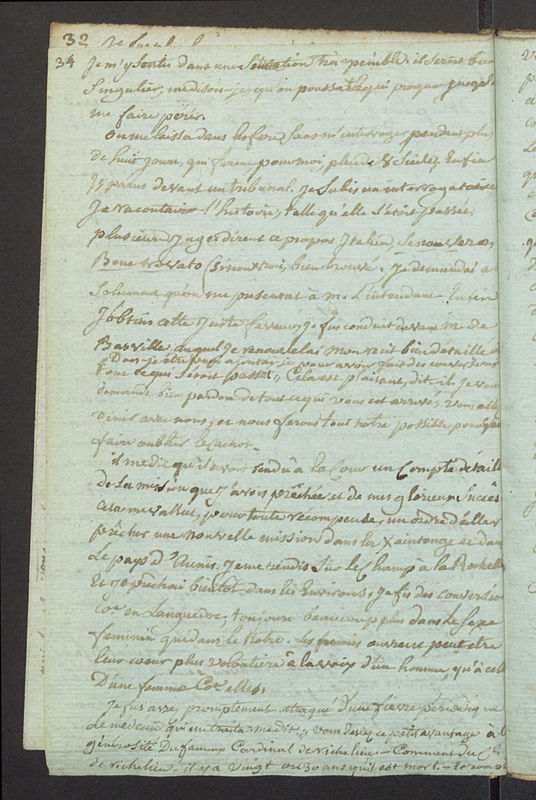 32
34 Je m'y sentis dans une situation très penible. il seroit bien
Singulier, me disois-je, qu'on poussat les proquos jusqu'à
me faire périr.
On me laissa dans les fers, sans m'interroger pendant plus
de huit jours, qui furent pour moi, plus de 8 Siècles. Enfin
Je parus devant un tribunal. Je subis un interrogatoire
Je racontai l'histoire, telle qu'elle s'étoit passée.
plusieurs Juges dirent ce propos Italien, Se non e vero
Bene trovato (sinon vrai, bien trouvé. Je demandai
Seulement qu'on me présentat à Mr. L'intendant. Enfin
J'obtins cette juste faveur, Je fus conduit devant Mr. de
Basville, auquel Je renouvellai mon récit bien détaillé
pour avoir fait des conversions
tout ce qui s'étoit passé. "Cela est plaisant, dit-il, Je vous
demande bien pardon de tout ce qui vous est arrivé, vous allez
diner avec nous, et nous ferons tout notre possible pour vous
faire oublier le cachot.
il me dit qu'il avoit rendu à la Cour un Compte détaillé
de la mission que j'avois prêchée, et de mes glorieux succès
cela me valut, pour toute récompense, un ordre d'aller
prêcher une nouvelle mission dans la Xaintonge et dans
Le pays d'Aunis. Je me rendis sur le champ à la Rochelle
Et Je prêchai bientôt dans les Environs. Je fis des conversions
comme en Languedoc, toujours beaucoup plus dans le sexe
féminin que dans le notre. les femmes ouvrent peut etre
leur coeur plus volontiers à la voix d'un homme, qu'à celle
D'une femme Coe. elles.
Je fus assez promptement attaqué d'une fievre périodique
Le médecin qui me traita me dit: vous devez ce petit avantage à la
générosité Du fameux Cardinal de Richelieu - Comment du C
de richelieu - il y a vingt ou 30 ans qu'il est mort -